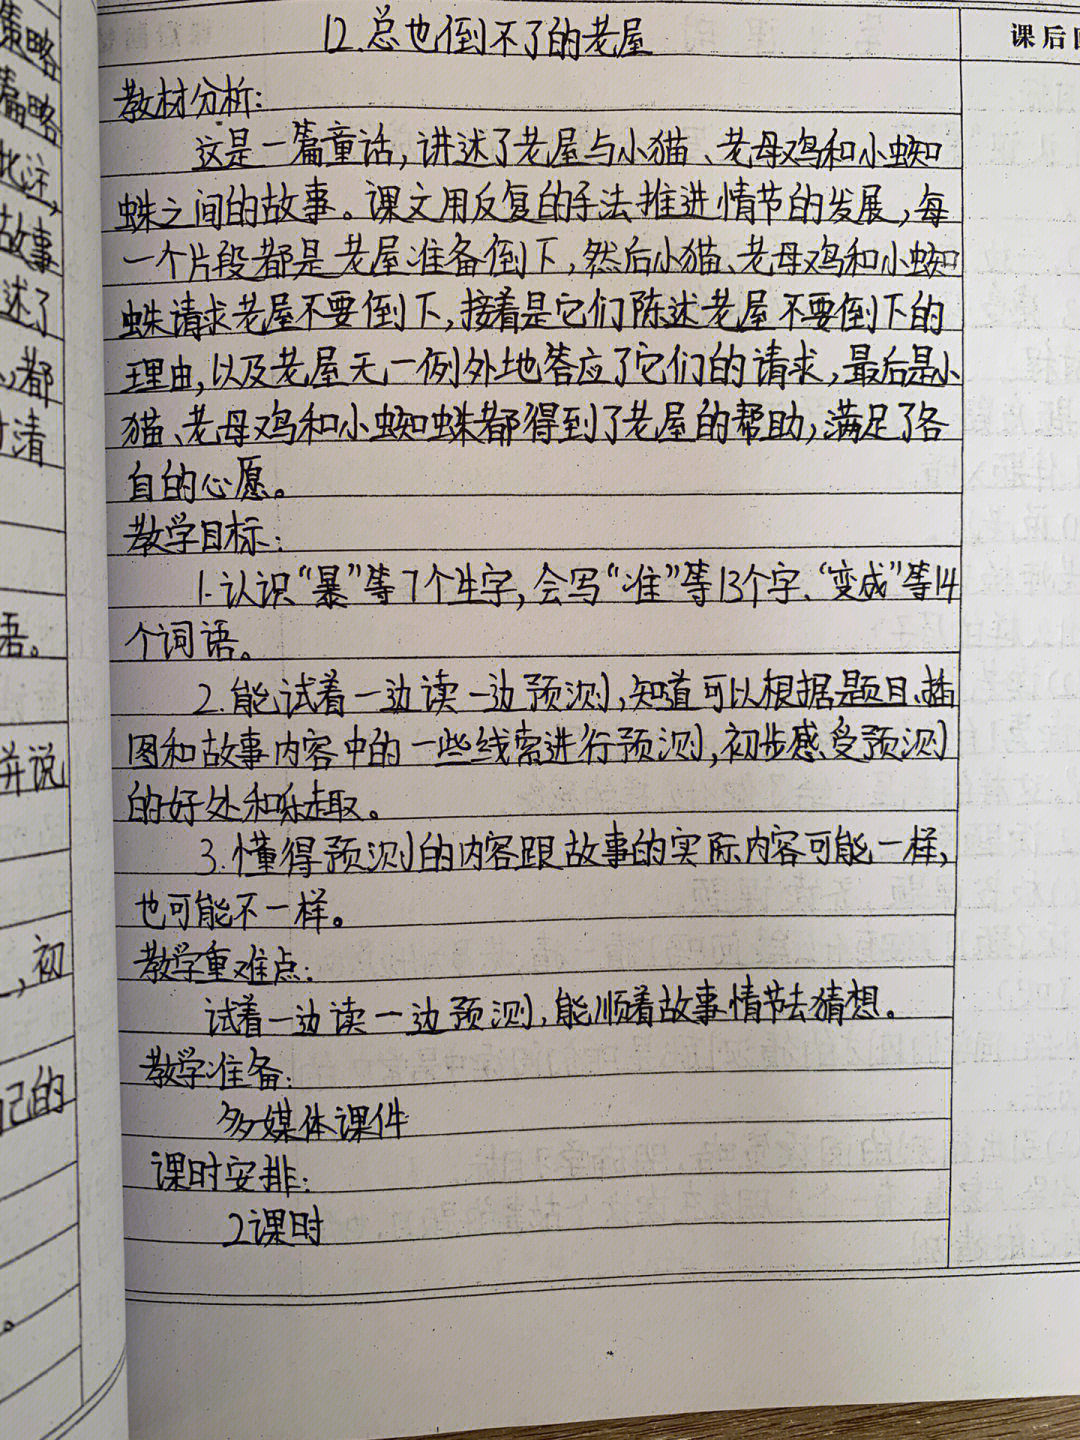 12.总也倒不了的老屋
课后
教材分析:
这是一篇童话,讲述了老屋与小猫、老母鸡和小蜘
蛛之间的故事。课文用反复的手法推进情节的发展,每
一个片段都是老屋准备倒下,然后小猫、老母鸡和小蜘
蛛请求老屋不要倒下,接着是它们陈述老屋不要倒下的
理由,以及老屋无一例外地答应了它们的请求,最后是小
猫、老母鸡和小蜘蛛都得到了老屋的帮助,满足了各
自的心愿。
教学目标:
1.认识“暴”等7个生字,会写“准”等13个字、“变成”等14
个词语。
2.能试着一边读一边预测,知道可以根据题目、插
图和故事内容中的一些线索进行预测,初步感受预测
的好处和乐趣。
3.懂得预测的内容跟故事的实际内容可能一样,
也可能不一样。
教学重难点:
试着一边读一边预测,能顺着故事情节去猜想。
教学准备:
多媒体课件
课时安排:
2课时
策略
篇略
批注,
故事
述了
都
清
语。
并说
,初
己的
。